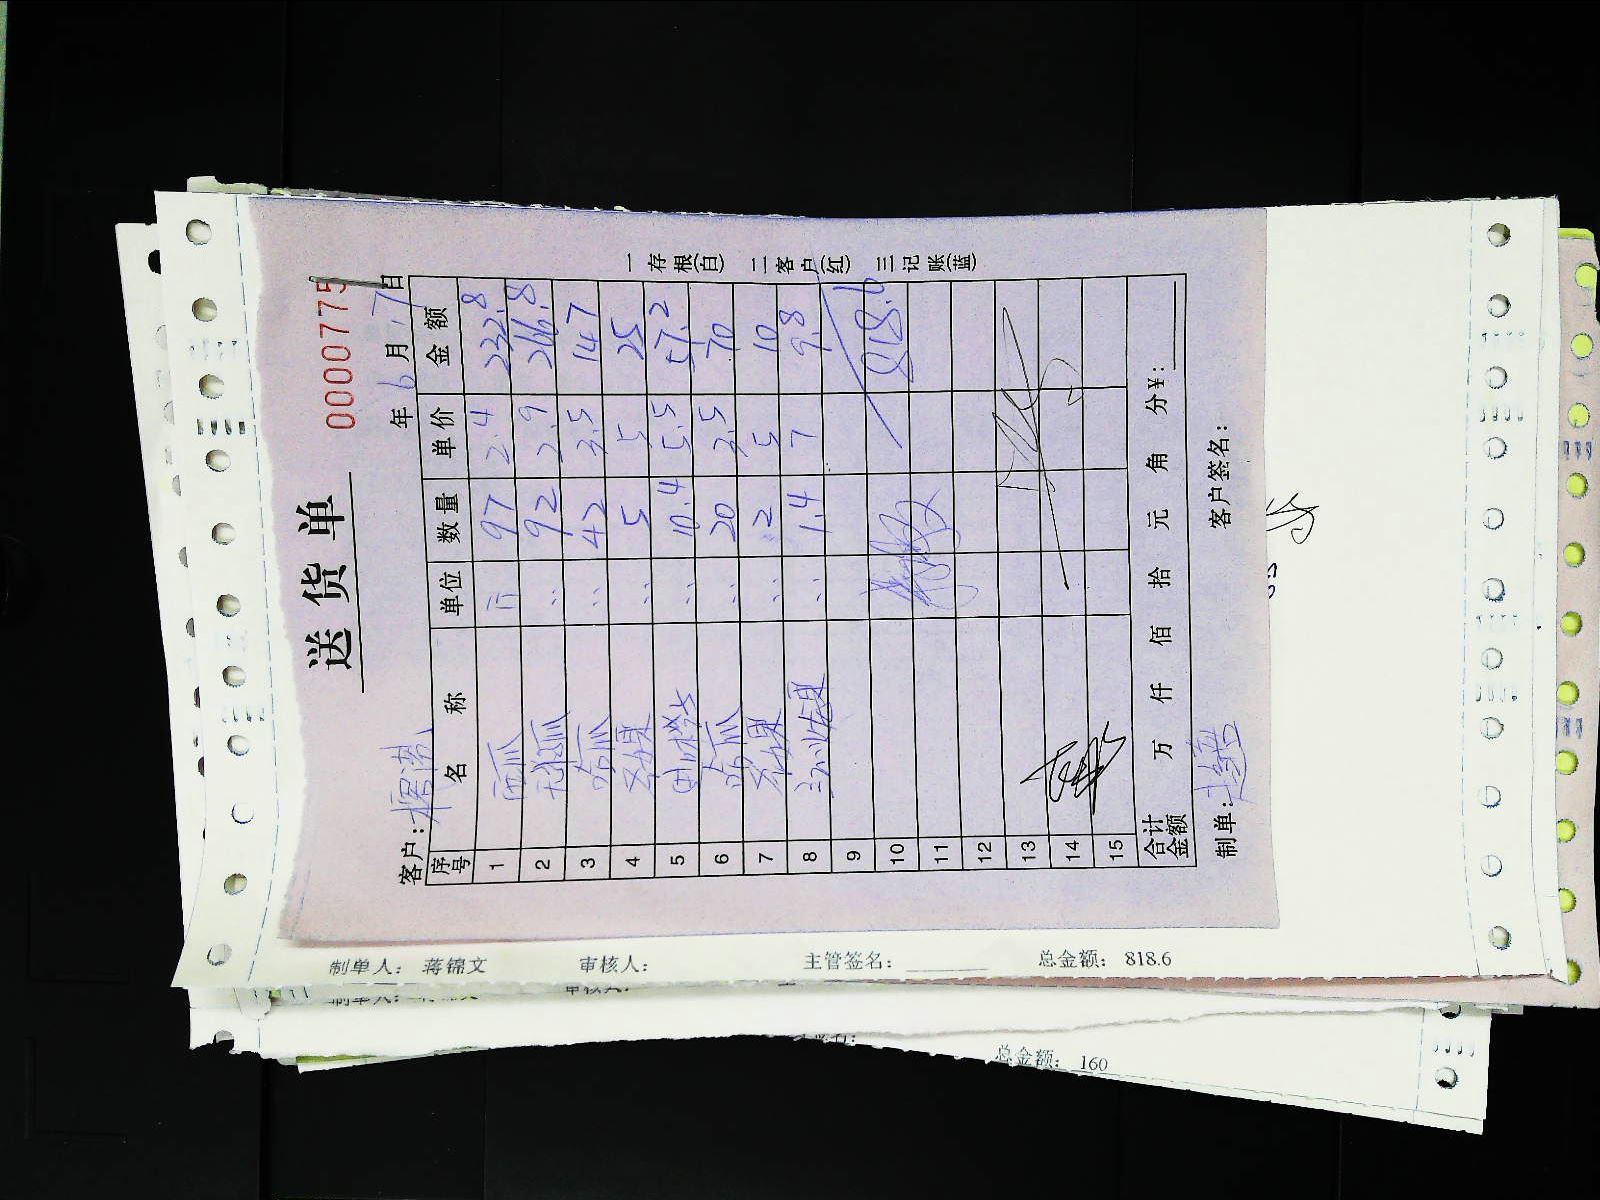 送货单
0000775
年6月17日
客户:
序号 名称 单位 数量 单价 金额
1 西瓜 斤 97 2.4 232.8
2 92 2.9 266.8
3 42 3.5 147
4 5 5 25
5 10.4 5.5 57.2
6 20 3.5 70
7 2 5 10
8 1.4 7 9.8
9
10 818.6
11
12
13
14
15
合计金额 万 仟 佰 拾 元 角 分¥:
制单: 客户签名:
一存根(白) 二客户(红) 三记账(蓝)
制单人: 蒋锦文 审核人: 主管签名: 总金额: 818.6
总金额: 160